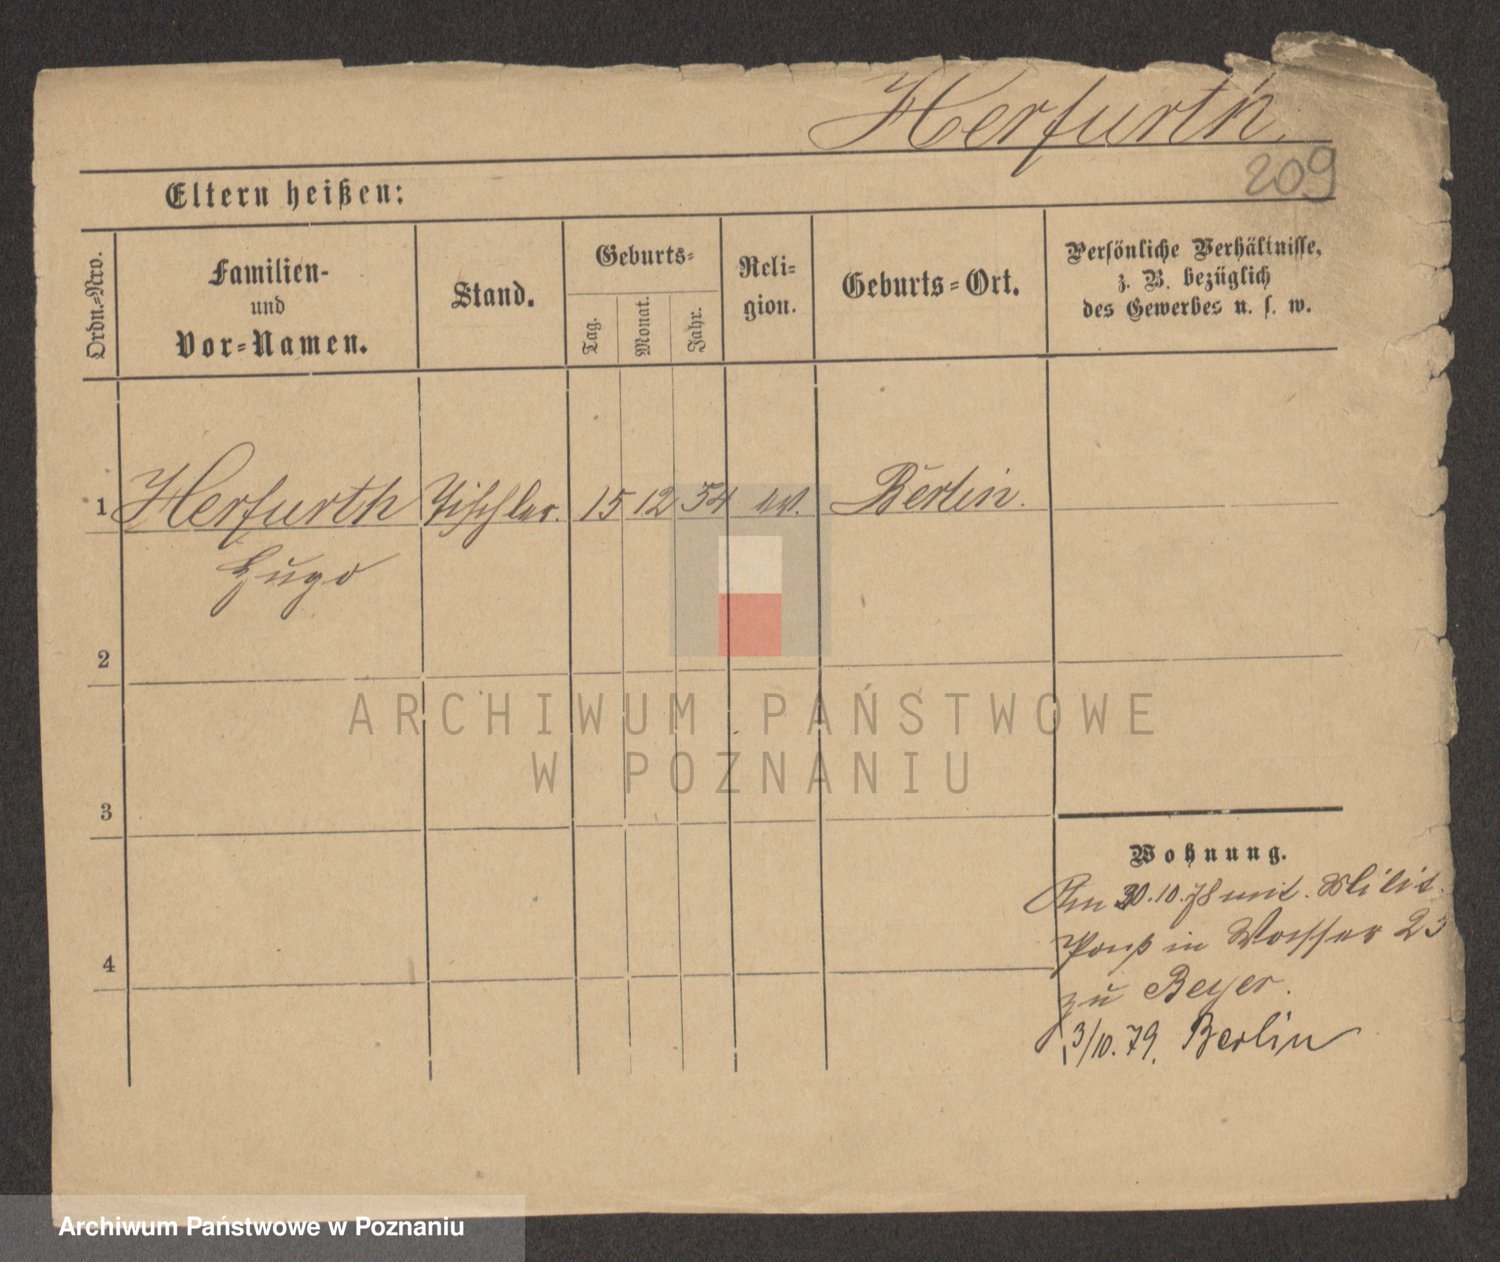 Herfurth.
209
Eltern heißen:
Ordn.-Nro.
Familien-
und
Vor-Namen.
Stand.
Geburts-
Tag.
Monat.
Jahr.
Reli-
gion.
Geburts-Ort.
Persönliche Verhältnisse,
z. B. bezüglich
des Gewerbes u. s. w.
1 Herfurth Tischler. 15 12 54 ev. Berlin.
Hugo
2
3
4
Wohnung.
Am 30.10.78 mit Milit.
Paß in Wasser 23
zu Beyer.
3/10. 79. Berlin
ARCHIWUM PAŃSTWOWE
W POZNANIU
Archiwum Państwowe w Poznaniu